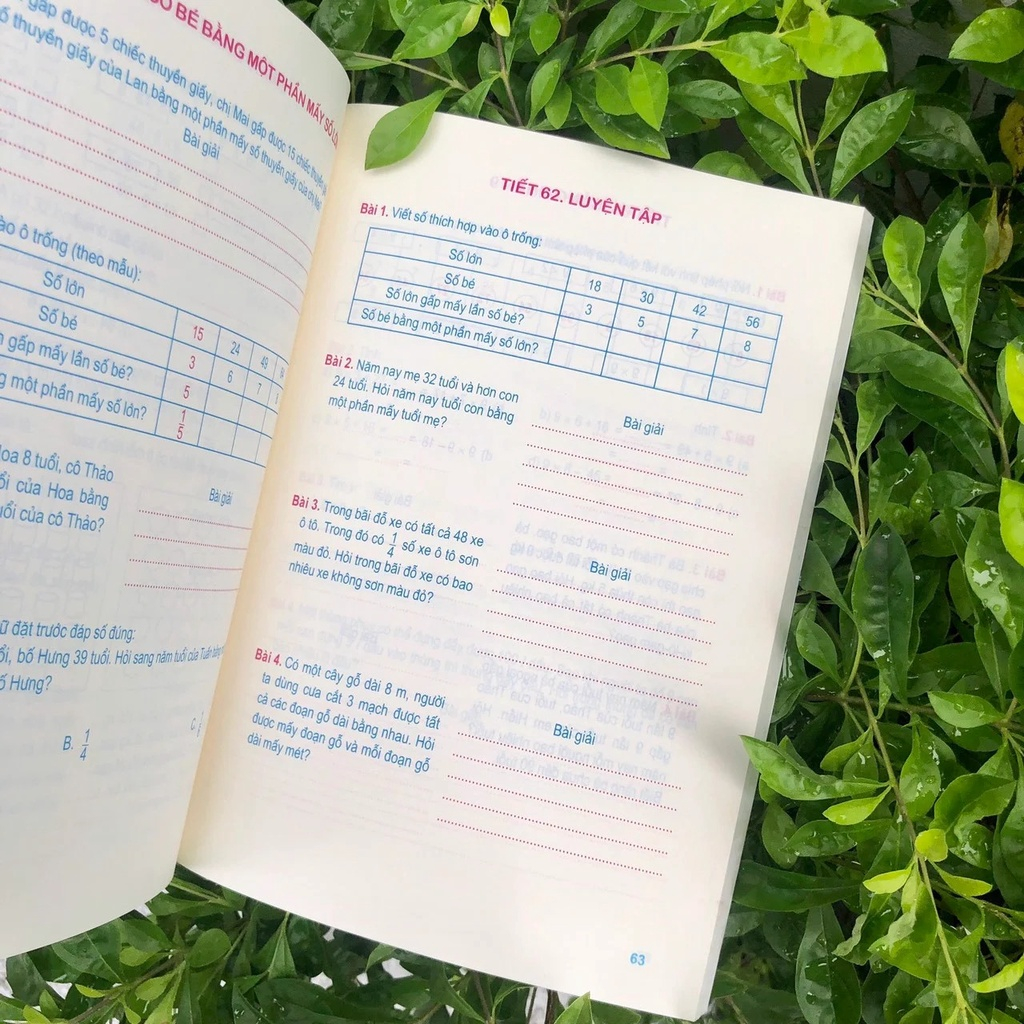 SỐ BÉ BẰNG MỘT PHẦN MẤY SỐ
gấp được 5 chiếc thuyền giấy, chị Mai gấp được 15 chiếc thuyền
số thuyền giấy của Lan bằng một phần mấy số thuyền giấy của chị Mai?
Bài giải
vào ô trống (theo mẫu):
Số lớn 15 24 49
Số bé 3 6 7
gấp mấy lần số bé? 5
một phần mấy số lớn? 1/5
Hoa 8 tuổi, cô Thảo
tuổi của Hoa bằng
tuổi của cô Thảo?
Bài giải
đặt trước đáp số đúng:
bố Hưng 39 tuổi. Hỏi sang năm tuổi của Tuấn
bố Hưng?
B. 1/4
C.
TIẾT 62. LUYỆN TẬP
Bài 1. Viết số thích hợp vào ô trống:
Số lớn 18 30 42 56
Số bé 3 5 7 8
Số lớn gấp mấy lần số bé?
Số bé bằng một phần mấy số lớn?
Bài 2. Năm nay mẹ 32 tuổi và hơn con
24 tuổi. Hỏi năm nay tuổi con bằng
một phần mấy tuổi mẹ?
Bài giải
Bài 3. Trong bãi đỗ xe có tất cả 48 xe
ô tô. Trong đó có 1/4 số xe ô tô sơn
màu đỏ. Hỏi trong bãi đỗ xe có bao
nhiêu xe không sơn màu đỏ?
Bài giải
Bài 4. Có một cây gỗ dài 8 m, người
ta dùng cưa cắt 3 mạch được tất
cả các đoạn gỗ dài bằng nhau. Hỏi
được mấy đoạn gỗ và mỗi đoạn gỗ
dài mấy mét?
Bài giải
63